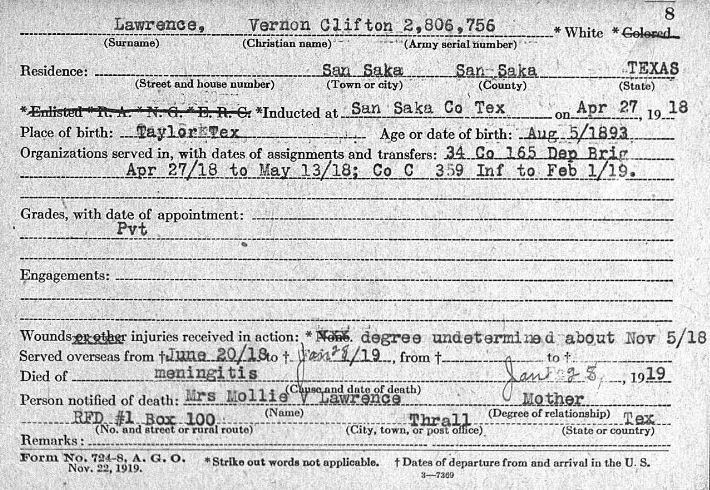 8
Lawrence, Vernon Clifton 2,806,756 * White * Colored
(Surname) (Christian name) (Army serial number)
Residence: San Saka San Saka TEXAS
(Street and house number) (Town or city) (County) (State)
* Enlisted * R. A. * N. G. * E. R. C. *Inducted at San Saka Co Tex on Apr 27, 1918
Place of birth: Taylor Tex Age or date of birth: Aug 5/1893
Organizations served in, with dates of assignments and transfers: 34 Co 165 Dep Brig
Apr 27/18 to May 13/18; Co C 359 Inf to Feb 1/19.
Grades, with date of appointment:
Pvt
Engagements:
Wounds or other injuries received in action: * None. degree undetermined about Nov 5/18
Served overseas from † June 20/18 to † Jan 28/19, from † to †
Died of meningitis Jan 28, 1919
(Cause and date of death)
Person notified of death: Mrs Mollie V Lawrence Mother
(Name) (Degree of relationship)
RFD #1 Box 100 Thrall Tex
(No. and street or rural route) (City, town, or post office) (State or country)
Remarks:
Form No. 724-8, A. G. O. *Strike out words not applicable. † Dates of departure from and arrival in the U. S.
Nov. 22, 1919. 3—7369